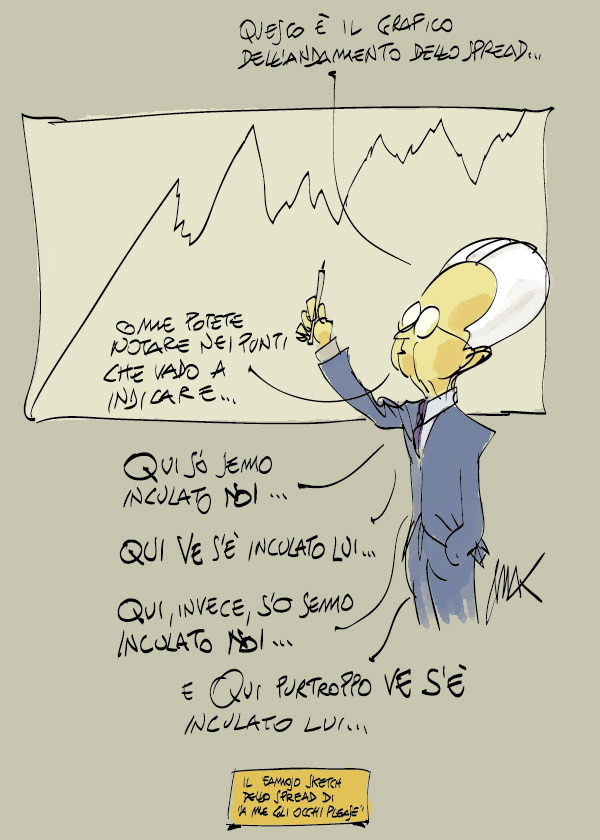 QUESCO È IL GRAFICO
DELL'ANDAMENTO DELLO SPREAD...
COME POTETE
NOTARE NEI PUNTI
CHE VADO A
INDICARE...
QUI SÓ SEMO
INCULATO NOI...
QUI VE S'È INCULATO LUI...
QUI, INVECE, S'O SEMO
INCULATO NOI...
E QUI PURTROPPO VE S'È
INCULATO LUI...
IL FAMOSO SKETCH
DELLO SPREAD DI
"A ME GLI OCCHI PLEASE"